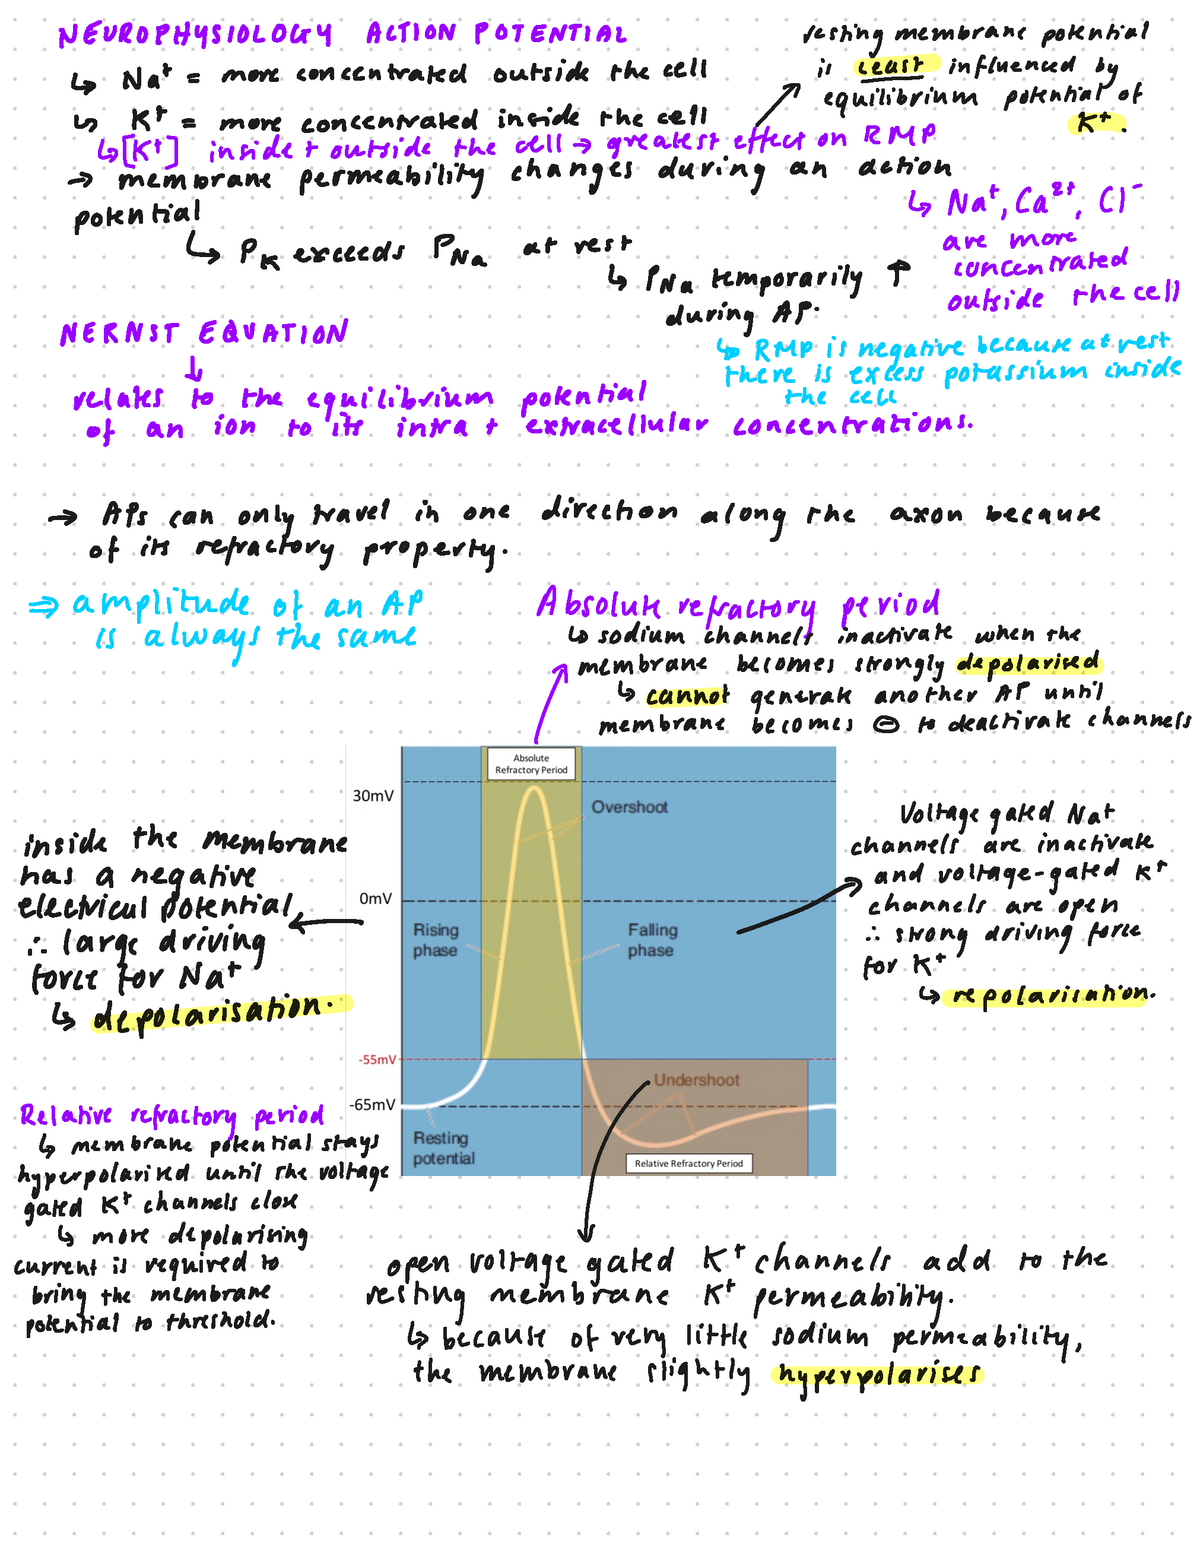 NEUROPHYSIOLOGY ACTION POTENTIAL
↳ Na⁺ = more concentrated outside the cell
↳ K⁺ = more concentrated inside the cell
↳ [K⁺] inside + outside the cell → greatest effect on RMP
resting membrane potential
is least influenced by
equilibrium potential of
K⁺.
→ membrane permeability changes during an action
potential
↳ PK exceeds PNa at rest
↳ PNa temporarily ↑
during AP.
↳ Na⁺, Ca²⁺, Cl⁻
are more
concentrated
outside the cell
↳ RMP is negative because at rest
there is excess potassium inside
the cell
NERNST EQUATION
↓
relates to the equilibrium potential
of an ion to its intra + extracellular concentrations.
→ APs can only travel in one direction along the axon because
of its refractory property.
⇒ amplitude of an AP
is always the same
Absolute refractory period
↳ sodium channels inactivate when the
membrane becomes strongly depolarised
↳ cannot generate another AP until
membrane becomes ⊖ to deactivate channels
Absolute
Refractory Period
30mV
Overshoot
0mV
Rising
phase
Falling
phase
-55mV
Undershoot
-65mV
Resting
potential
Relative Refractory Period
inside the membrane
has a negative
electrical potential
∴ large driving
force for Na⁺
↳ depolarisation.
Voltage gated Na⁺
channels are inactivate
and voltage-gated K⁺
channels are open
∴ strong driving force
for K⁺
↳ repolarisation.
Relative refractory period
↳ membrane potential stays
hyperpolarised until the voltage
gated K⁺ channels close
↳ more depolarising
current is required to
bring the membrane
potential to threshold.
open voltage gated K⁺ channels add to the
resting membrane K⁺ permeability.
↳ because of very little sodium permeability,
the membrane slightly hyperpolarises